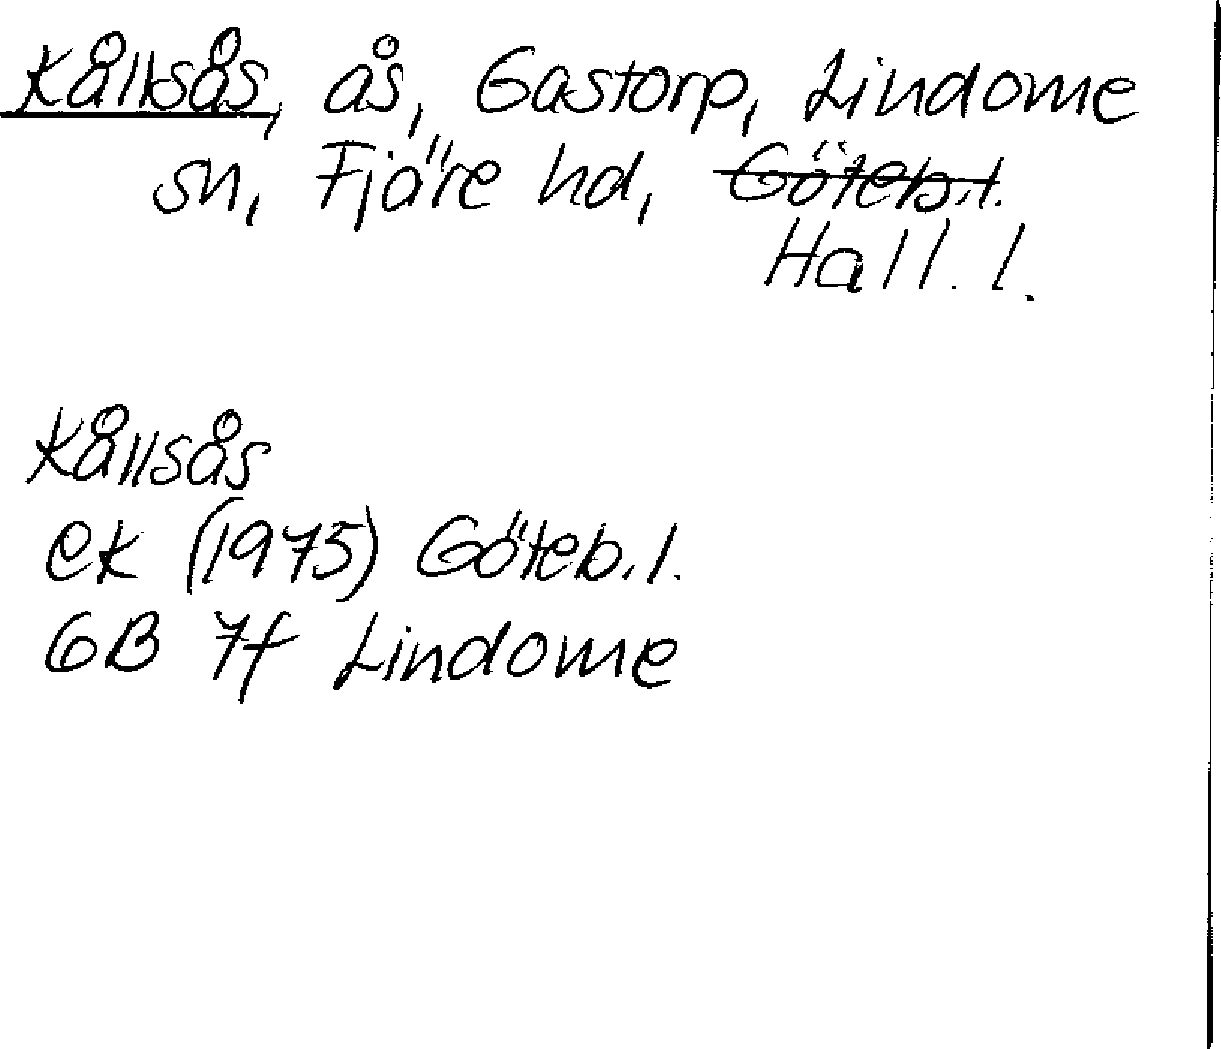 Kållsås, ås, Gastorp, Lindome
sn, Fjäre hd, Göteb.l.
Hall. l.
Kållsås
ek (1975) Göteb.l.
6B 7f Lindome